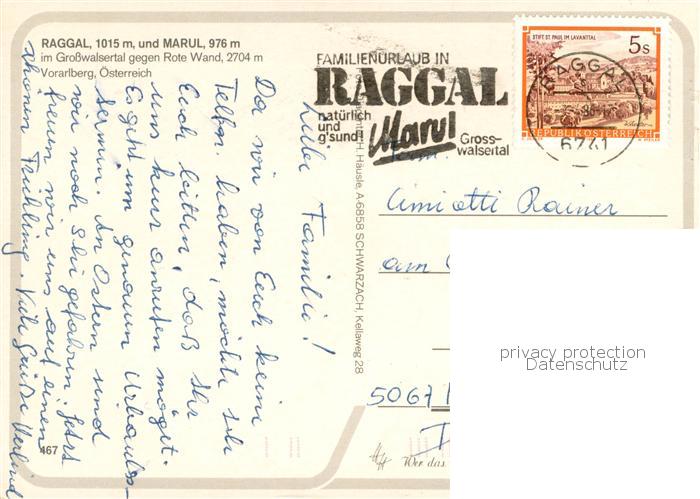 RAGGAL, 1015 m, und MARUL, 976 m
im Großwalsertal gegen Rote Wand, 2704 m
Vorarlberg, Österreich
FAMILIENURLAUB IN
RAGGAL
natürlich
und
g'sund!
Marul
Gross-
walsertal
STIFT ST. PAUL IM LAVANTTAL
5s
REPUBLIK ÖSTERREICH
RAGGAL
6741
Liebe Familie!
Da wir von Euch keine
Telefon. haben, möchte ich
Euch bitten, daß Ihr
uns kurz anrufen möget.
Es geht um genauen Urlaubs-
termin. An Ostern sind
wir noch Ski gefahren. Jetzt
freuen wir uns auf einen
schönen Frühling. Viele Grüße
H. Häusle, A-6858 SCHWARZACH, Kellaweg 28
Fam.
Amiotti Rainer
am
5067
467
Wer das
privacy protection
Datenschutz